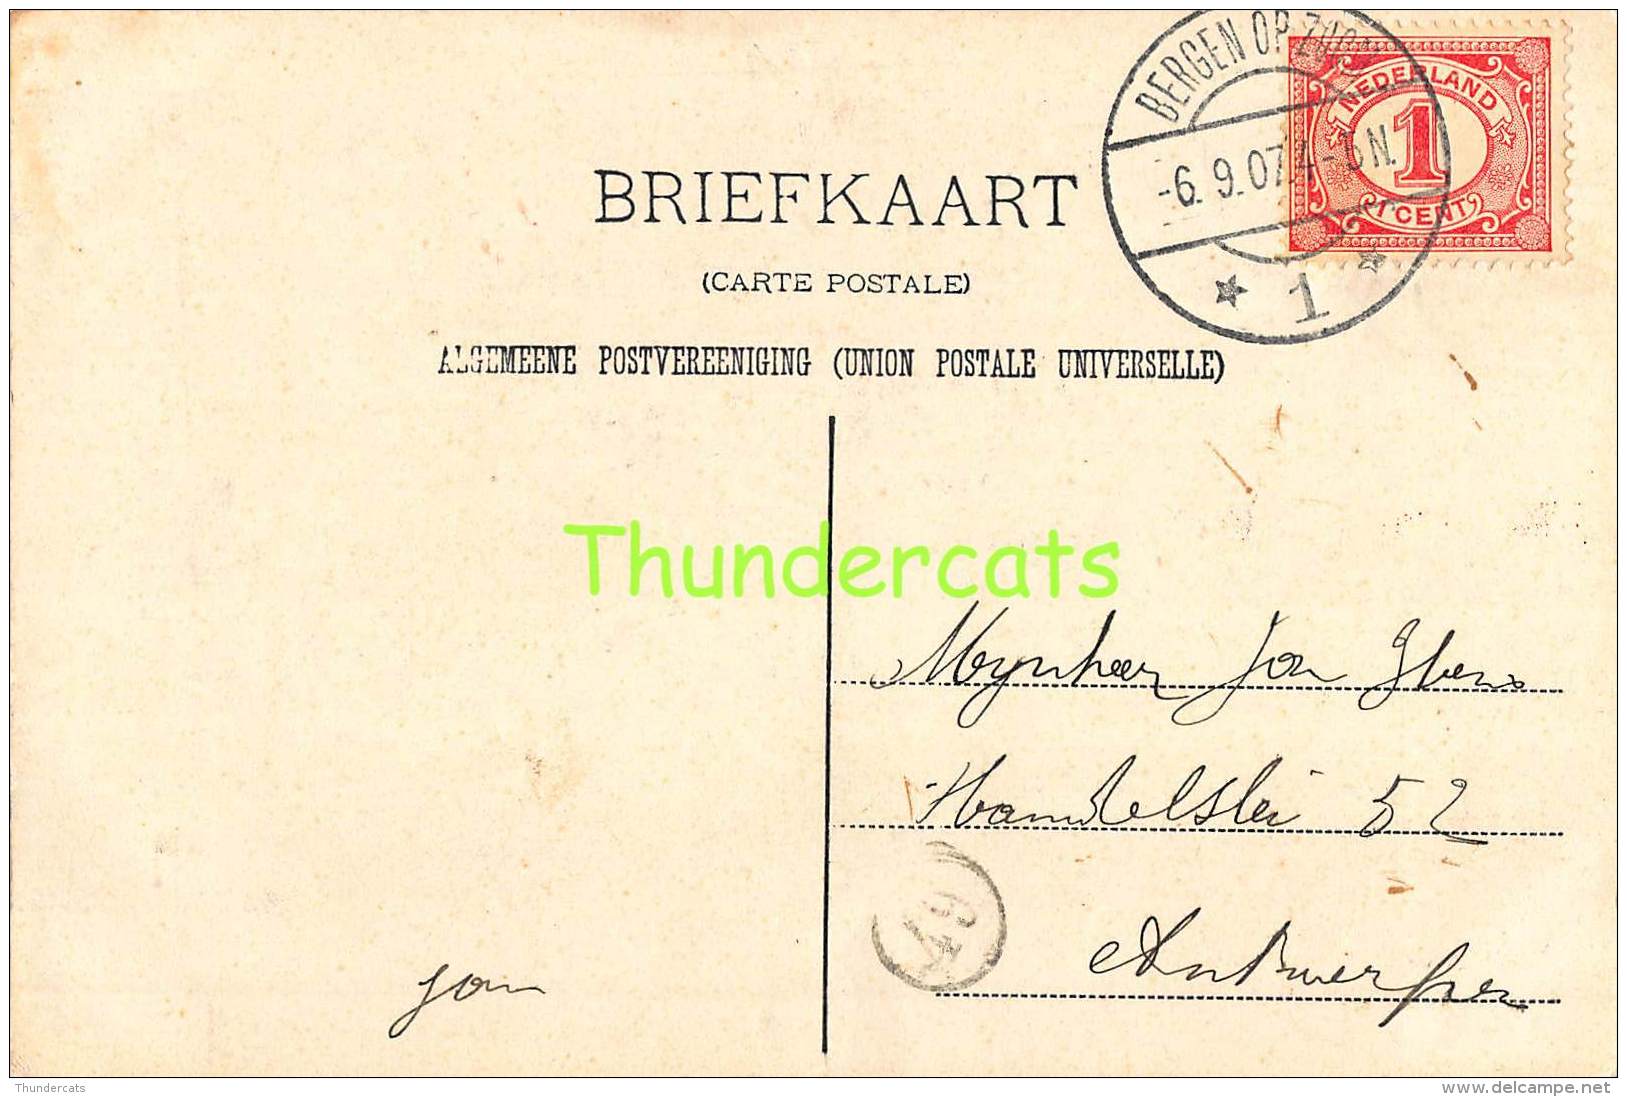 BERGEN OP ZOOM
-6. 9. 07. 4-5 N.
1
NEDERLAND
1
1 CENT
BRIEFKAART
(CARTE POSTALE)
ALGEMEENE POSTVEREENIGING (UNION POSTALE UNIVERSELLE)
Thundercats
Mynheer Jan
Handelslei 52
49
Antwerpen
Jan
Thundercats
www.delcampe.net